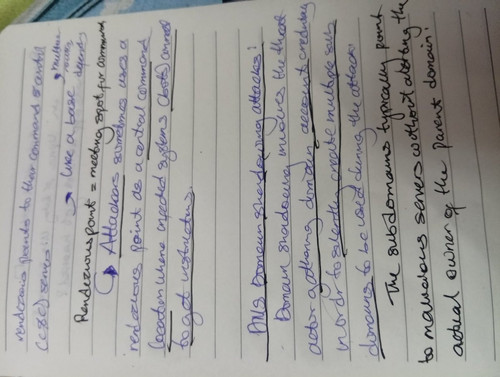 rendezvous points to their command & control
(C&C) servers
→ like a base
Rendezvous point = meeting spot for
Attackers sometimes use a
rendezvous point as a central command
location where infected systems (bots) connect
to get instructions
DNS Domain shadowing attacks:
Domain shadowing involves the threat
actor gathering domain account credentials
in order to silently create multiple sub
domains to be used during the attacks
The subdomains typically point
to malicious servers without alerting the
actual owner of the parent domain.